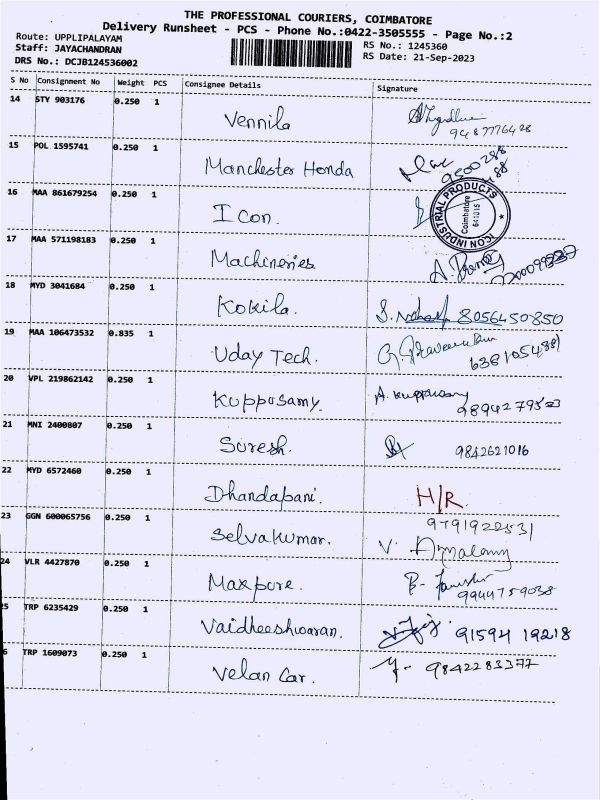 THE PROFESSIONAL COURIERS, COIMBATORE
Delivery Runsheet - PCS - Phone No.:0422-3505555 - Page No.:2
Route: UPPLIPALAYAM RS No.: 1245360
Staff: JAYACHANDRAN RS Date: 21-Sep-2023
DRS No.: DCJB124536002
S No Consignment No Weight PCS Consignee Details Signature
14 STY 903176 0.250 1 Vennila
9487776428
15 POL 1595741 0.250 1 Manchester Honda
16 MAA 861679254 0.250 1 Icon.
ICON INDUSTRIAL PRODUCTS
Coimbatore
641015
17 MAA 571198183 0.250 1 Machineries
18 MYD 3041684 0.250 1 Kokila. 8056450850
19 MAA 106473532 0.835 1 Uday Tech.
20 VPL 219862142 0.250 1 Kupposamy. A. Kuppusamy
21 MNI 2400807 0.250 1 Suresh. 9842621016
22 MYD 6572460 0.250 1 Dhandapani. H/R
23 GGN 600065756 0.250 1 Selvakumar. 9791922531
24 VLR 4427870 0.250 1 Maxpure.
9944759038
25 TRP 6235429 0.250 1 Vaidheeshwaran. 91594 19218
6 TRP 1609073 0.250 1 Velan Car. 9842283377